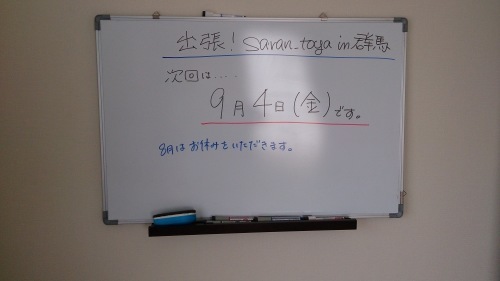 出張! Saran_toya in 群馬
次回は....
9月4日(金)です。
8月はお休みをいただきます。